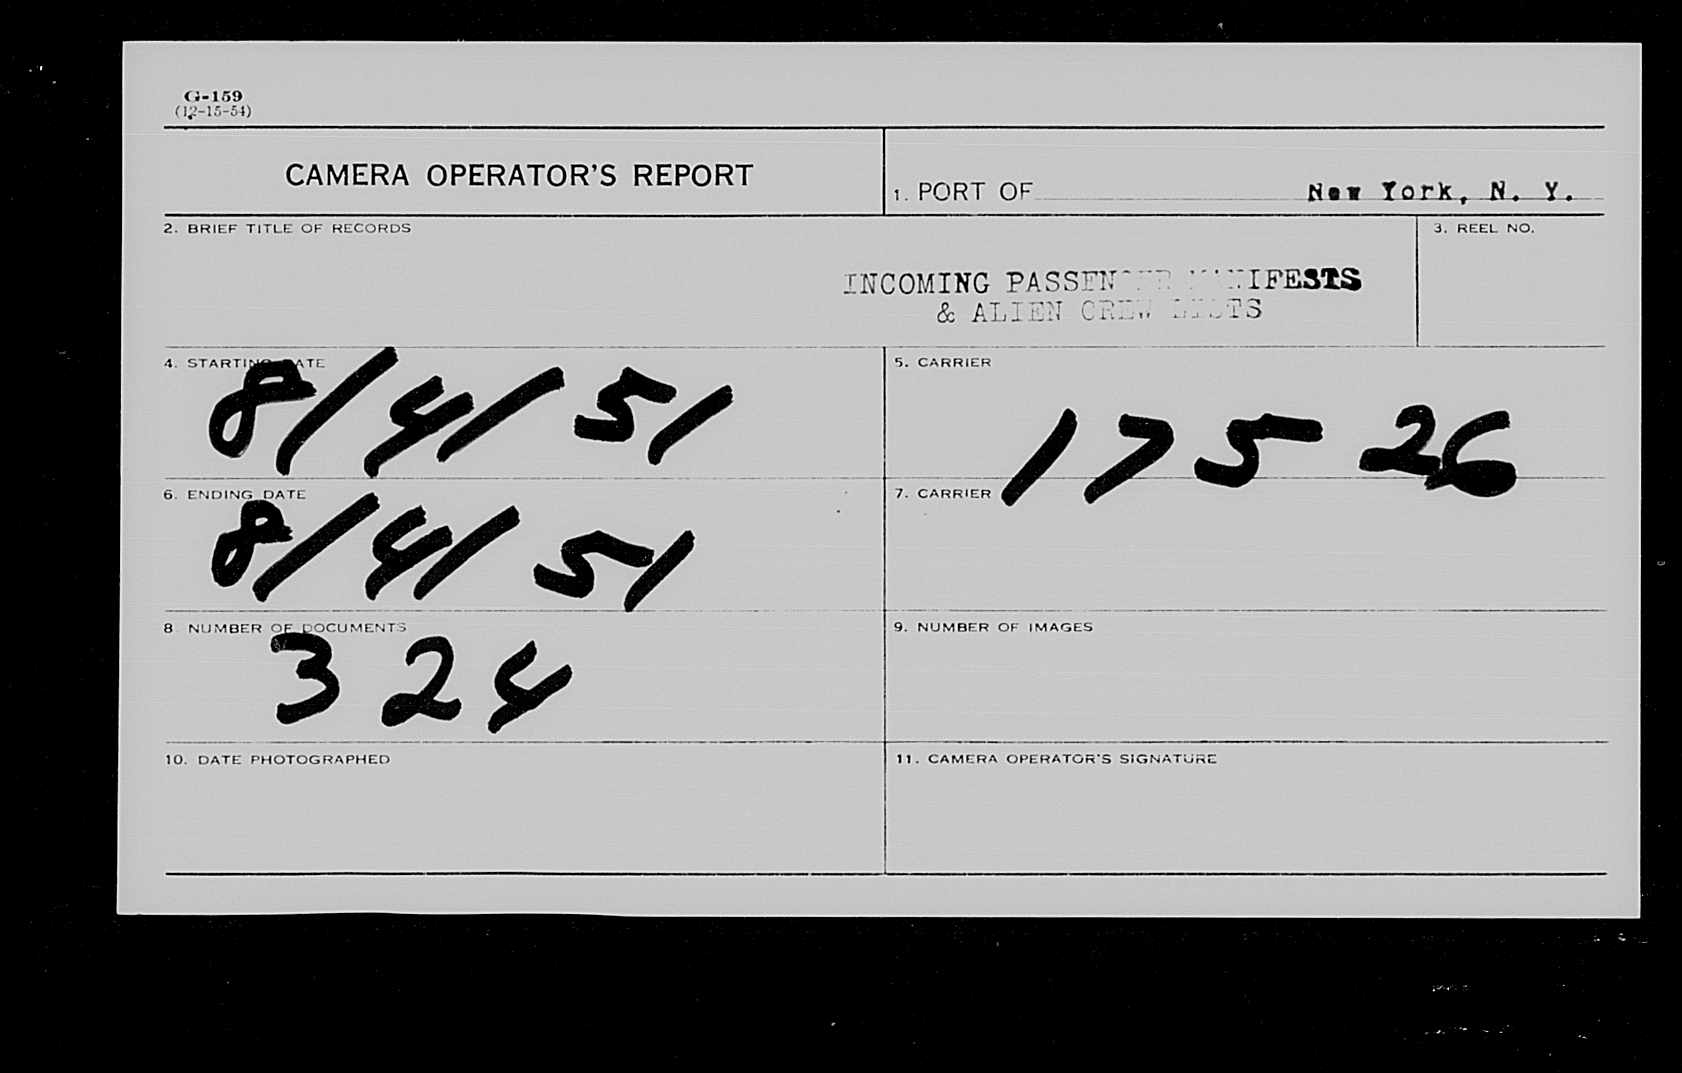 G-159
(12-15-54)
CAMERA OPERATOR'S REPORT
1. PORT OF New York, N. Y.
2. BRIEF TITLE OF RECORDS
3. REEL NO.
INCOMING PASSENGER MANIFESTS
& ALIEN CREW LISTS
4. STARTING DATE
8/4/51
5. CARRIER
17526
6. ENDING DATE
8/4/51
7. CARRIER
8 NUMBER OF DOCUMENTS
324
9. NUMBER OF IMAGES
10. DATE PHOTOGRAPHED
11. CAMERA OPERATOR'S SIGNATURE